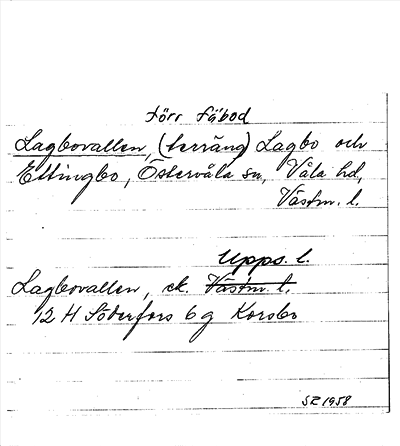 förr fäbod
Lagbovallen, (terräng) Lagbo och
Ettingbo, Östervåla sn, Våla hd,
Västm. l.
Upps. l.
Lagbovallen, ek. Västm. l.
12 H Söderfors 6 g Korsbo
SZ 1958